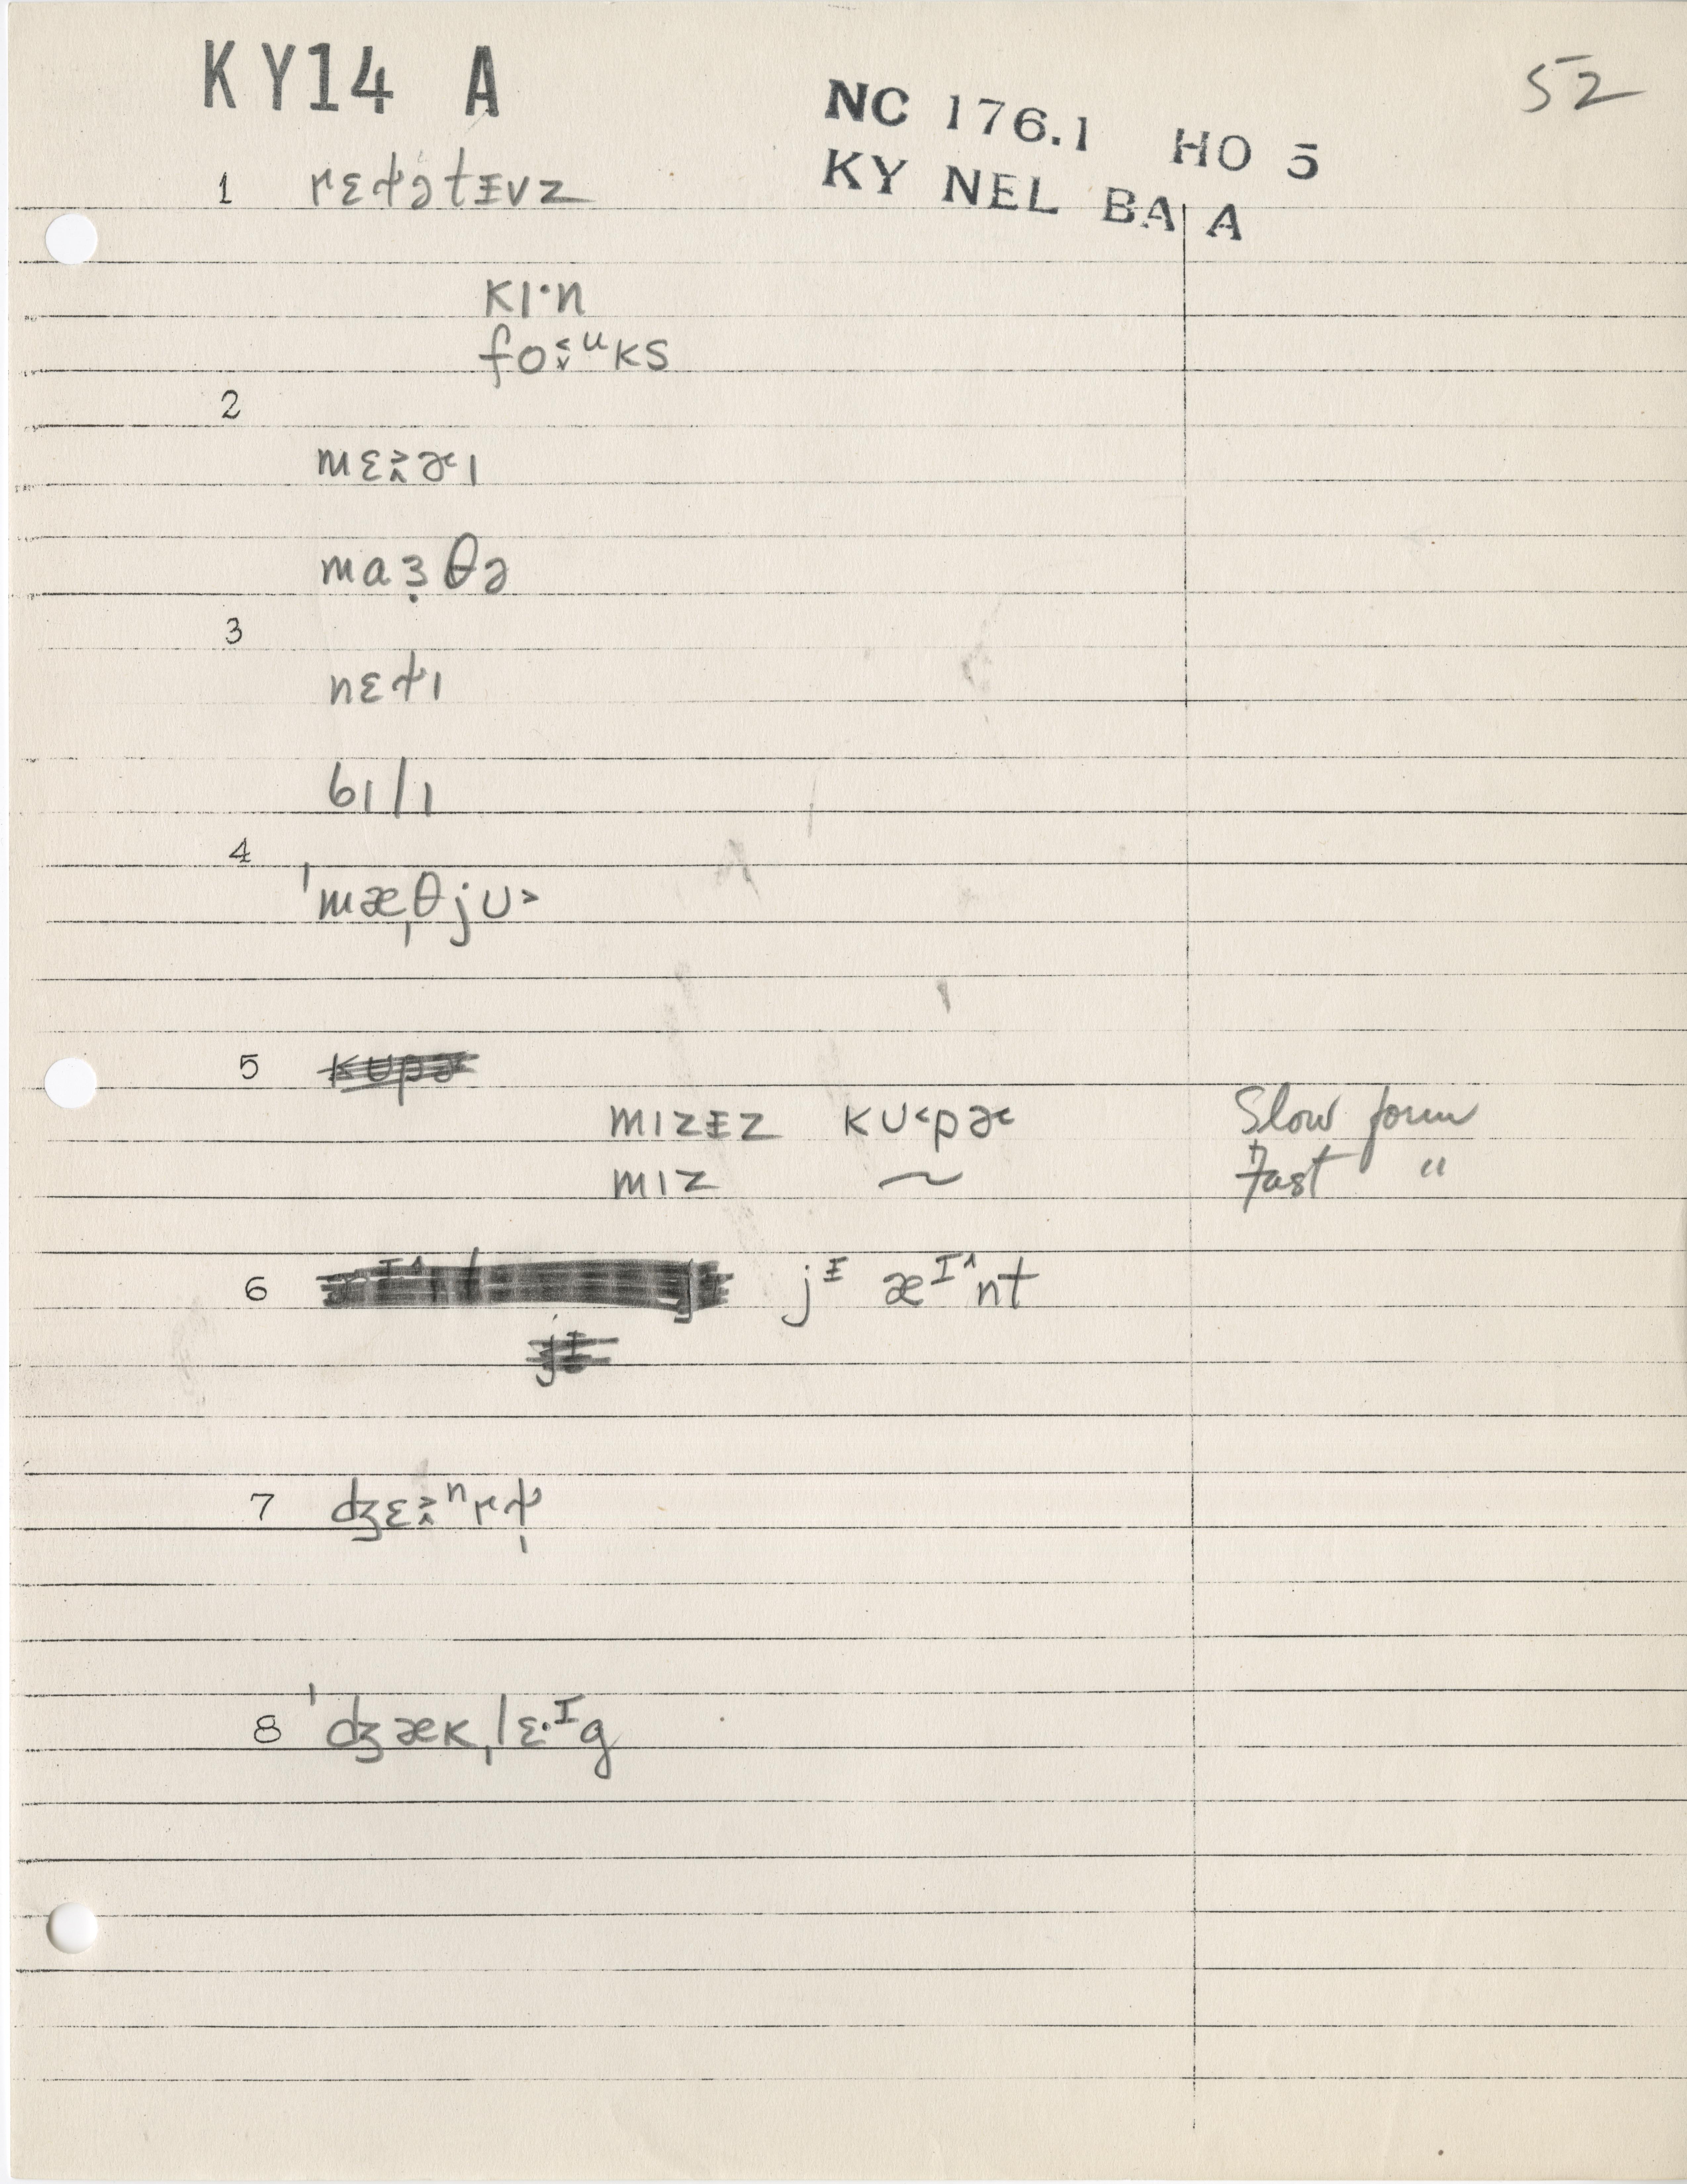 KY14 A
NC 176.1 HO 5
KY NEL BA A
52
1 rɛt̬ətᵻvz
kɪ·n
fo˂˅ᵘks
2
mɛ˃˄ɚɪ
maɜ̣θə
3
nɛt̬ɪ
bɪlɪ
4
ˈmæˌθjʊ˃
5
mɪzᵻz kʊ˂pɚ Slow form
mɪz ~ Fast "
6 jᵻ æᴵ˄nt
7 ʤɛ˃˄ⁿrt̬̩
8 ˈʤækˌlɛ·ᴵg